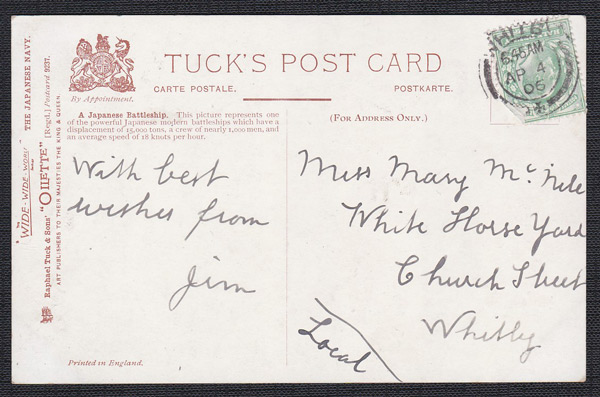 TUCK'S POST CARD
CARTE POSTALE.
POSTKARTE.
By Appointment.
A Japanese Battleship. This picture represents one
of the powerful Japanese modern battleships which have a
displacement of 15,000 tons, a crew of nearly 1,000 men, and
an average speed of 18 knots per hour.
(FOR ADDRESS ONLY.)
THE JAPANESE NAVY.
THE WIDE-WIDE-WORLD SERIES
Raphael Tuck & Sons' "OILETTE" [Regd.] Postcard 9237.
ART PUBLISHERS TO THEIR MAJESTIES THE KING & QUEEN
6.45AM
AP 4
06
With best
wishes from
Jim
Miss Mary Mc Nele
White Horse Yard
Church Street
Whitby
Local
Printed in England.